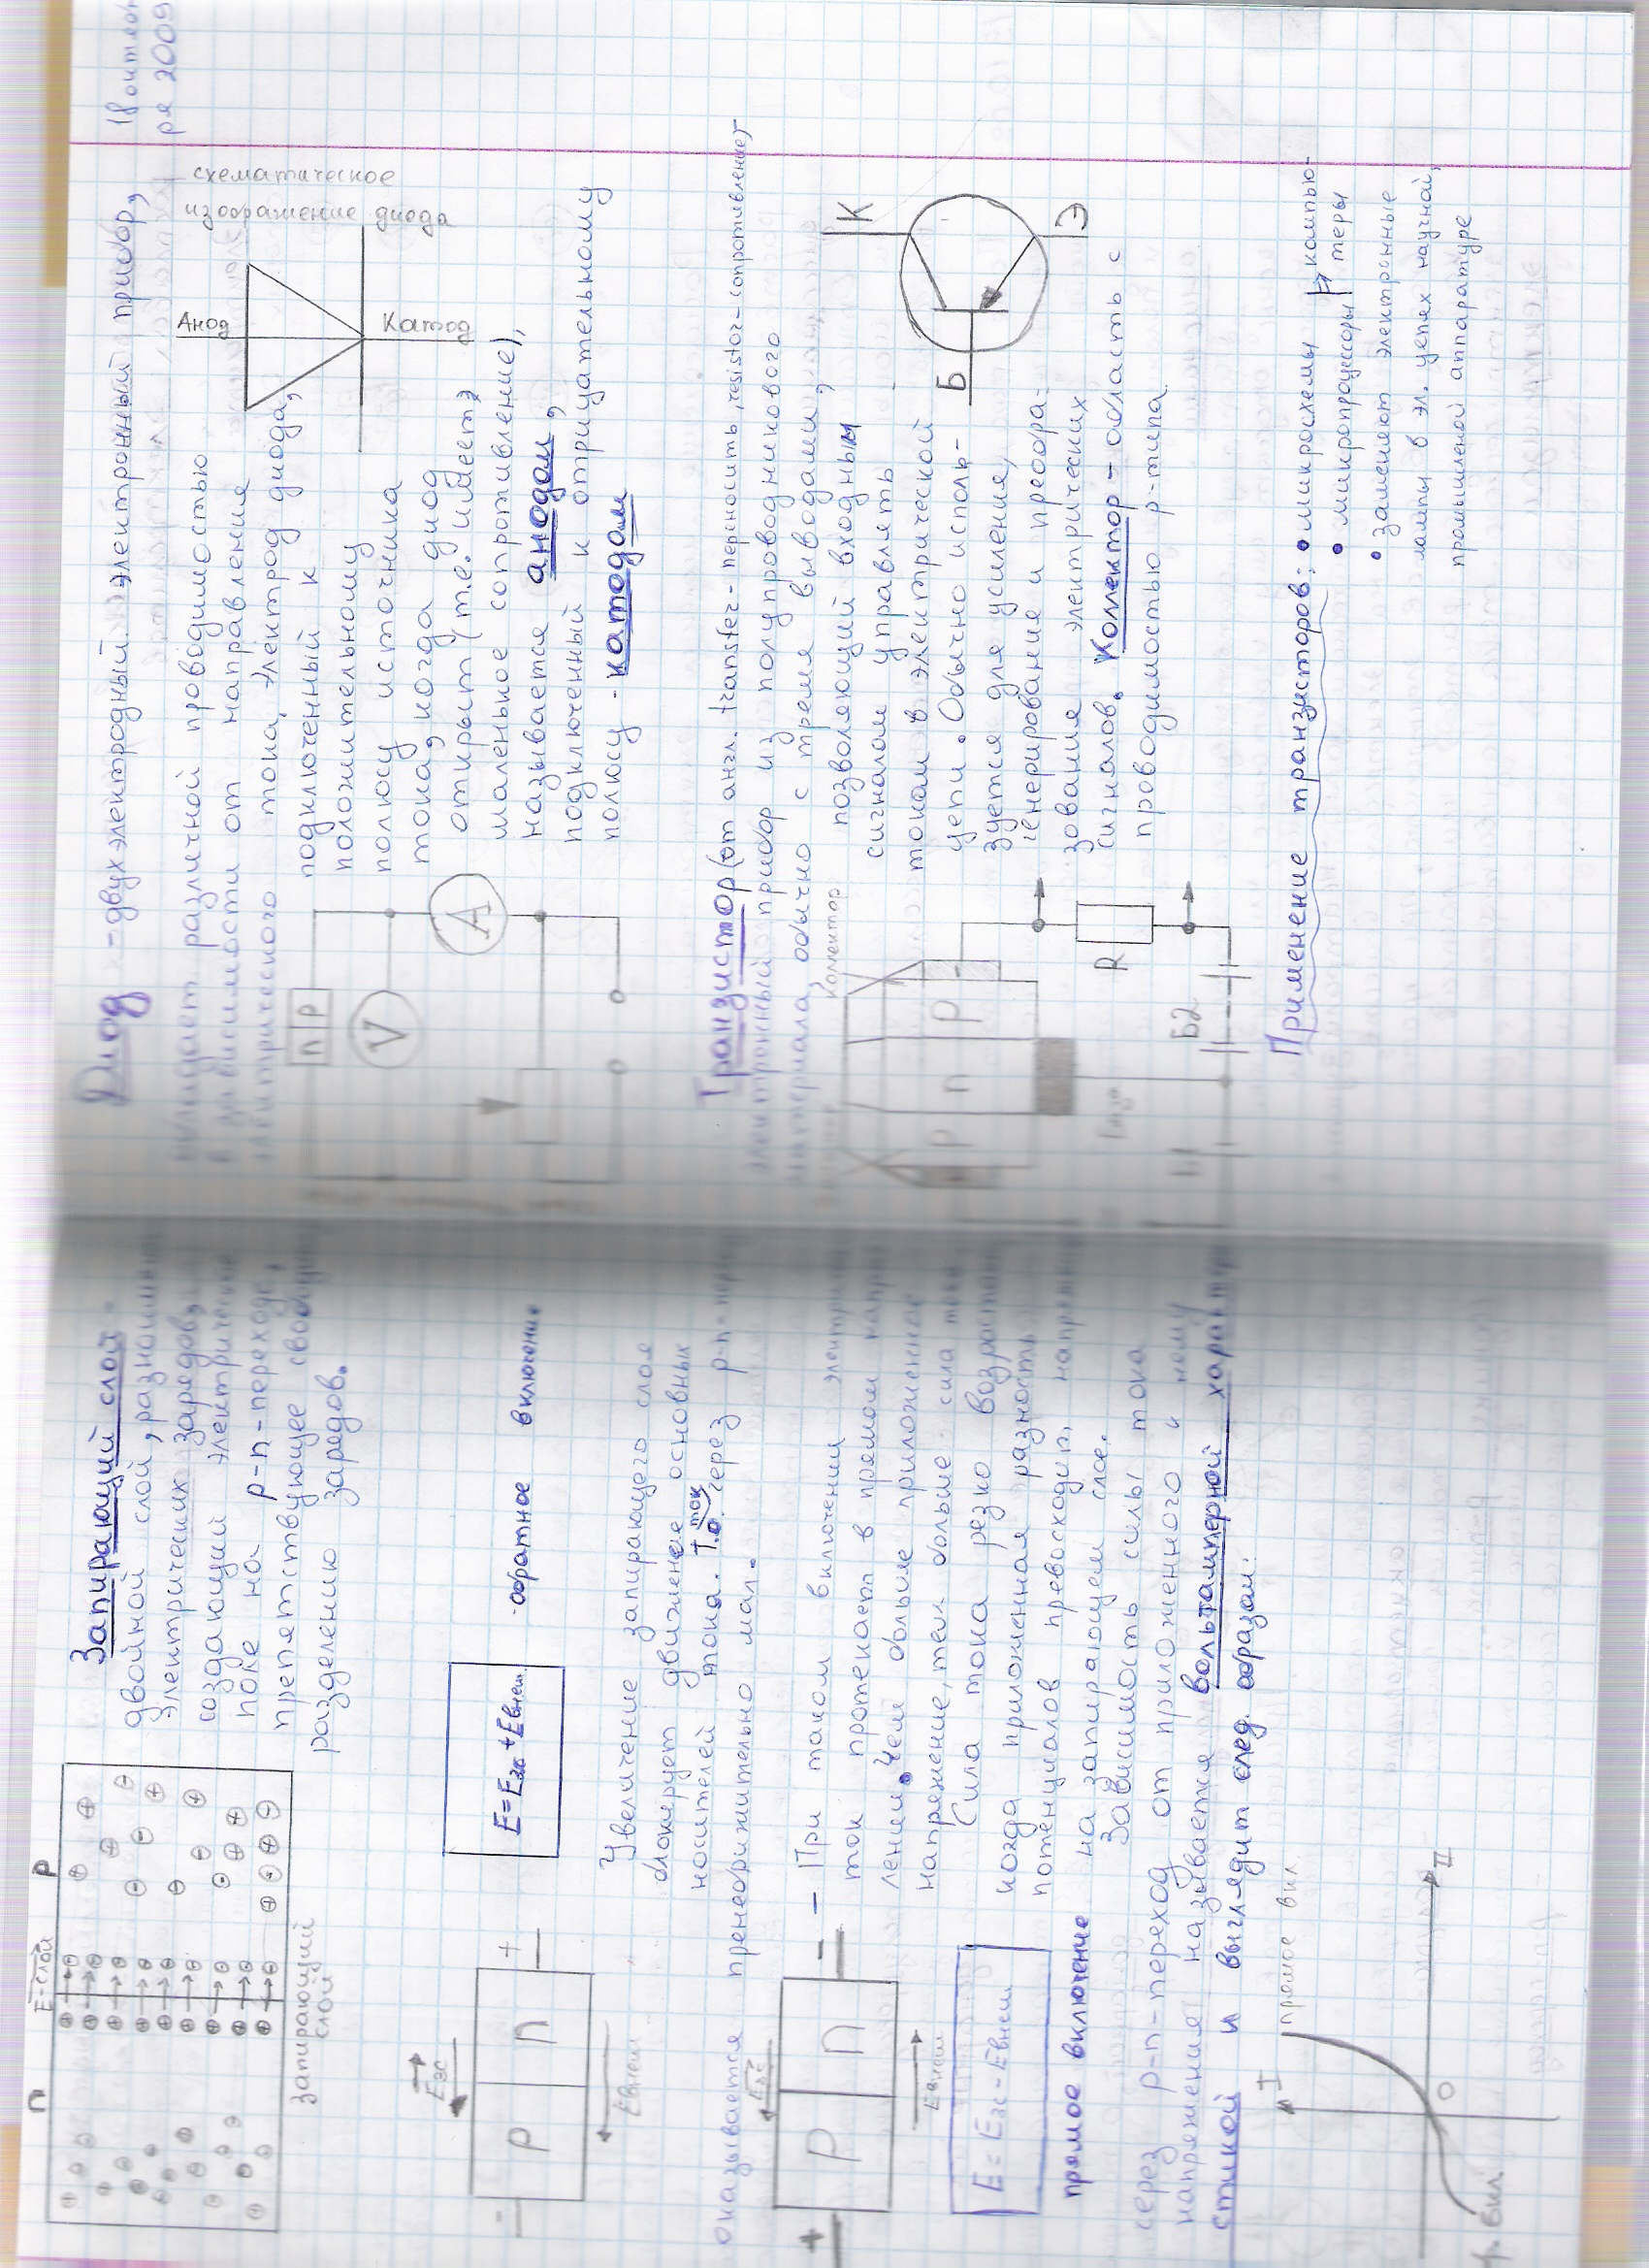 n
E-слой
p
Запирающий слой -
двойной слой, разноимён
электрических зарядов,
создающий электрическое
поле на p-n-переходе,
препятствующее свободн
разделению зарядов.
запирающий
слой
Eзс
- p n +
Eвнеш
E=Eзс+Eвнеш
- обратное включение
Увеличение запирающего слоя
блокирует движение основных
носителей тока. Т.о. ток через p-n-пере
оказывается пренебрижительно мал.
Eзс
+ p n -
Eвнеш
E=Eзс-Eвнеш
прямое включение
- При таком включении электрич
ток протекает в прямом направ
лении. Чем больше приложенное
напряжение, тем больше сила тока
Сила тока резко возрастает,
когда приложенная разность
потенциалов превосходит напряжен
на запирающем слое.
Зависимость силы тока
через p-n-переход от приложенного к нему
напряжения называется вольтамперной характери
стикой и выглядит след. образом:
I
прямое вкл.
O
вкл.
18 октяб
ря 2009
Диод - двухэлектродный электронный прибор,
обладает различной проводимостью
в зависимости от направления
электрического тока, электрод диода,
подключенный к
положительному
полюсу источника
тока, когда диод
открыт (т.е. имеет
маленькое сопротивление),
называется анодом,
подключенный к отрицательному
полюсу - катодом
n p
V
A
схематическое
изображение диода
Анод
Катод
Транзистор (от англ. transfer - переносить, resistor - сопротивление)
электронный прибор из полупроводникового
материала, обычно с тремя выводами,
позволяющий входным
сигналом управлять
током в электрической
цепи. Обычно исполь-
зуется для усиления,
генерирования и преобра-
зования электрических
сигналов. Коллектор - область с
проводимостью p-типа
Коллектор
p n p
База
R
Б1
Б2
К
Б
Э
Применение транзисторов: • микросхемы
• микропроцессоры
компью-
теры
• заменяют электронные
лампы в эл. цепях научной,
промышленой аппаратуре